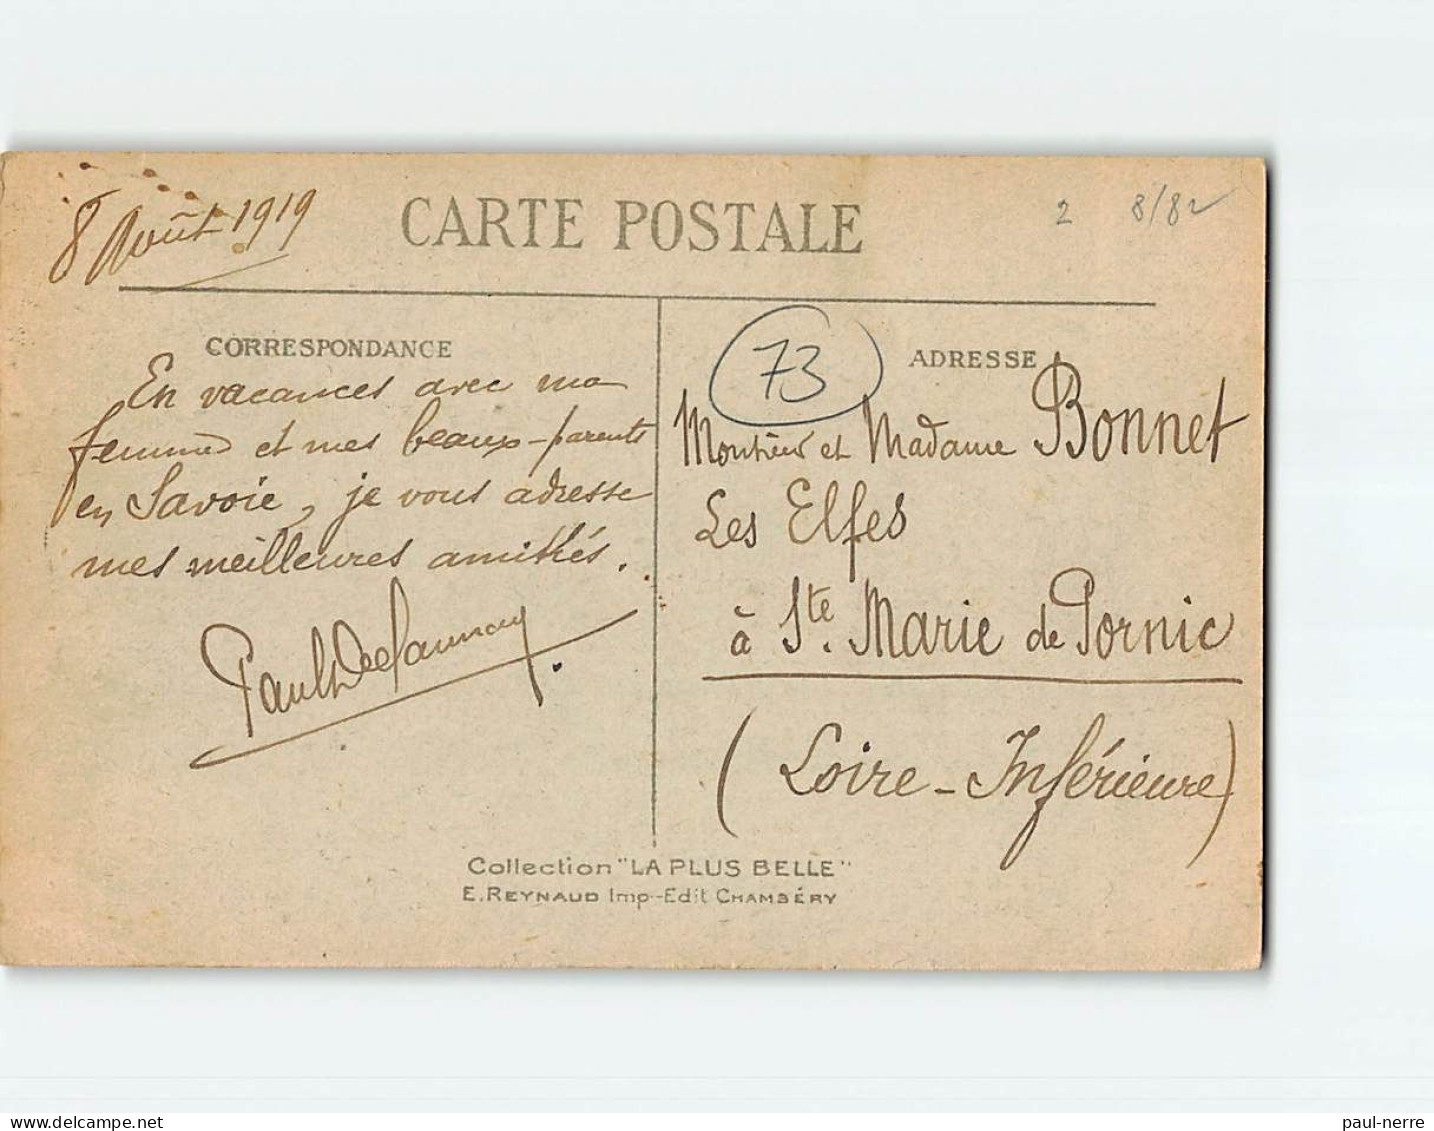 8 Août 1919
CARTE POSTALE
2 8/82
CORRESPONDANCE
En vacances avec ma
femme et mes beaux-parents
en Savoie, je vous adresse
mes meilleures amitiés.
Paul Delaunay
73
ADRESSE
Monsieur et Madame Bonnet
Les Elfes
à Ste. Marie de Pornic
(Loire-Inférieure)
Collection "LA PLUS BELLE"
E. REYNAUD Imp-Edit CHAMBÉRY
delcampe.net
paul-nerre